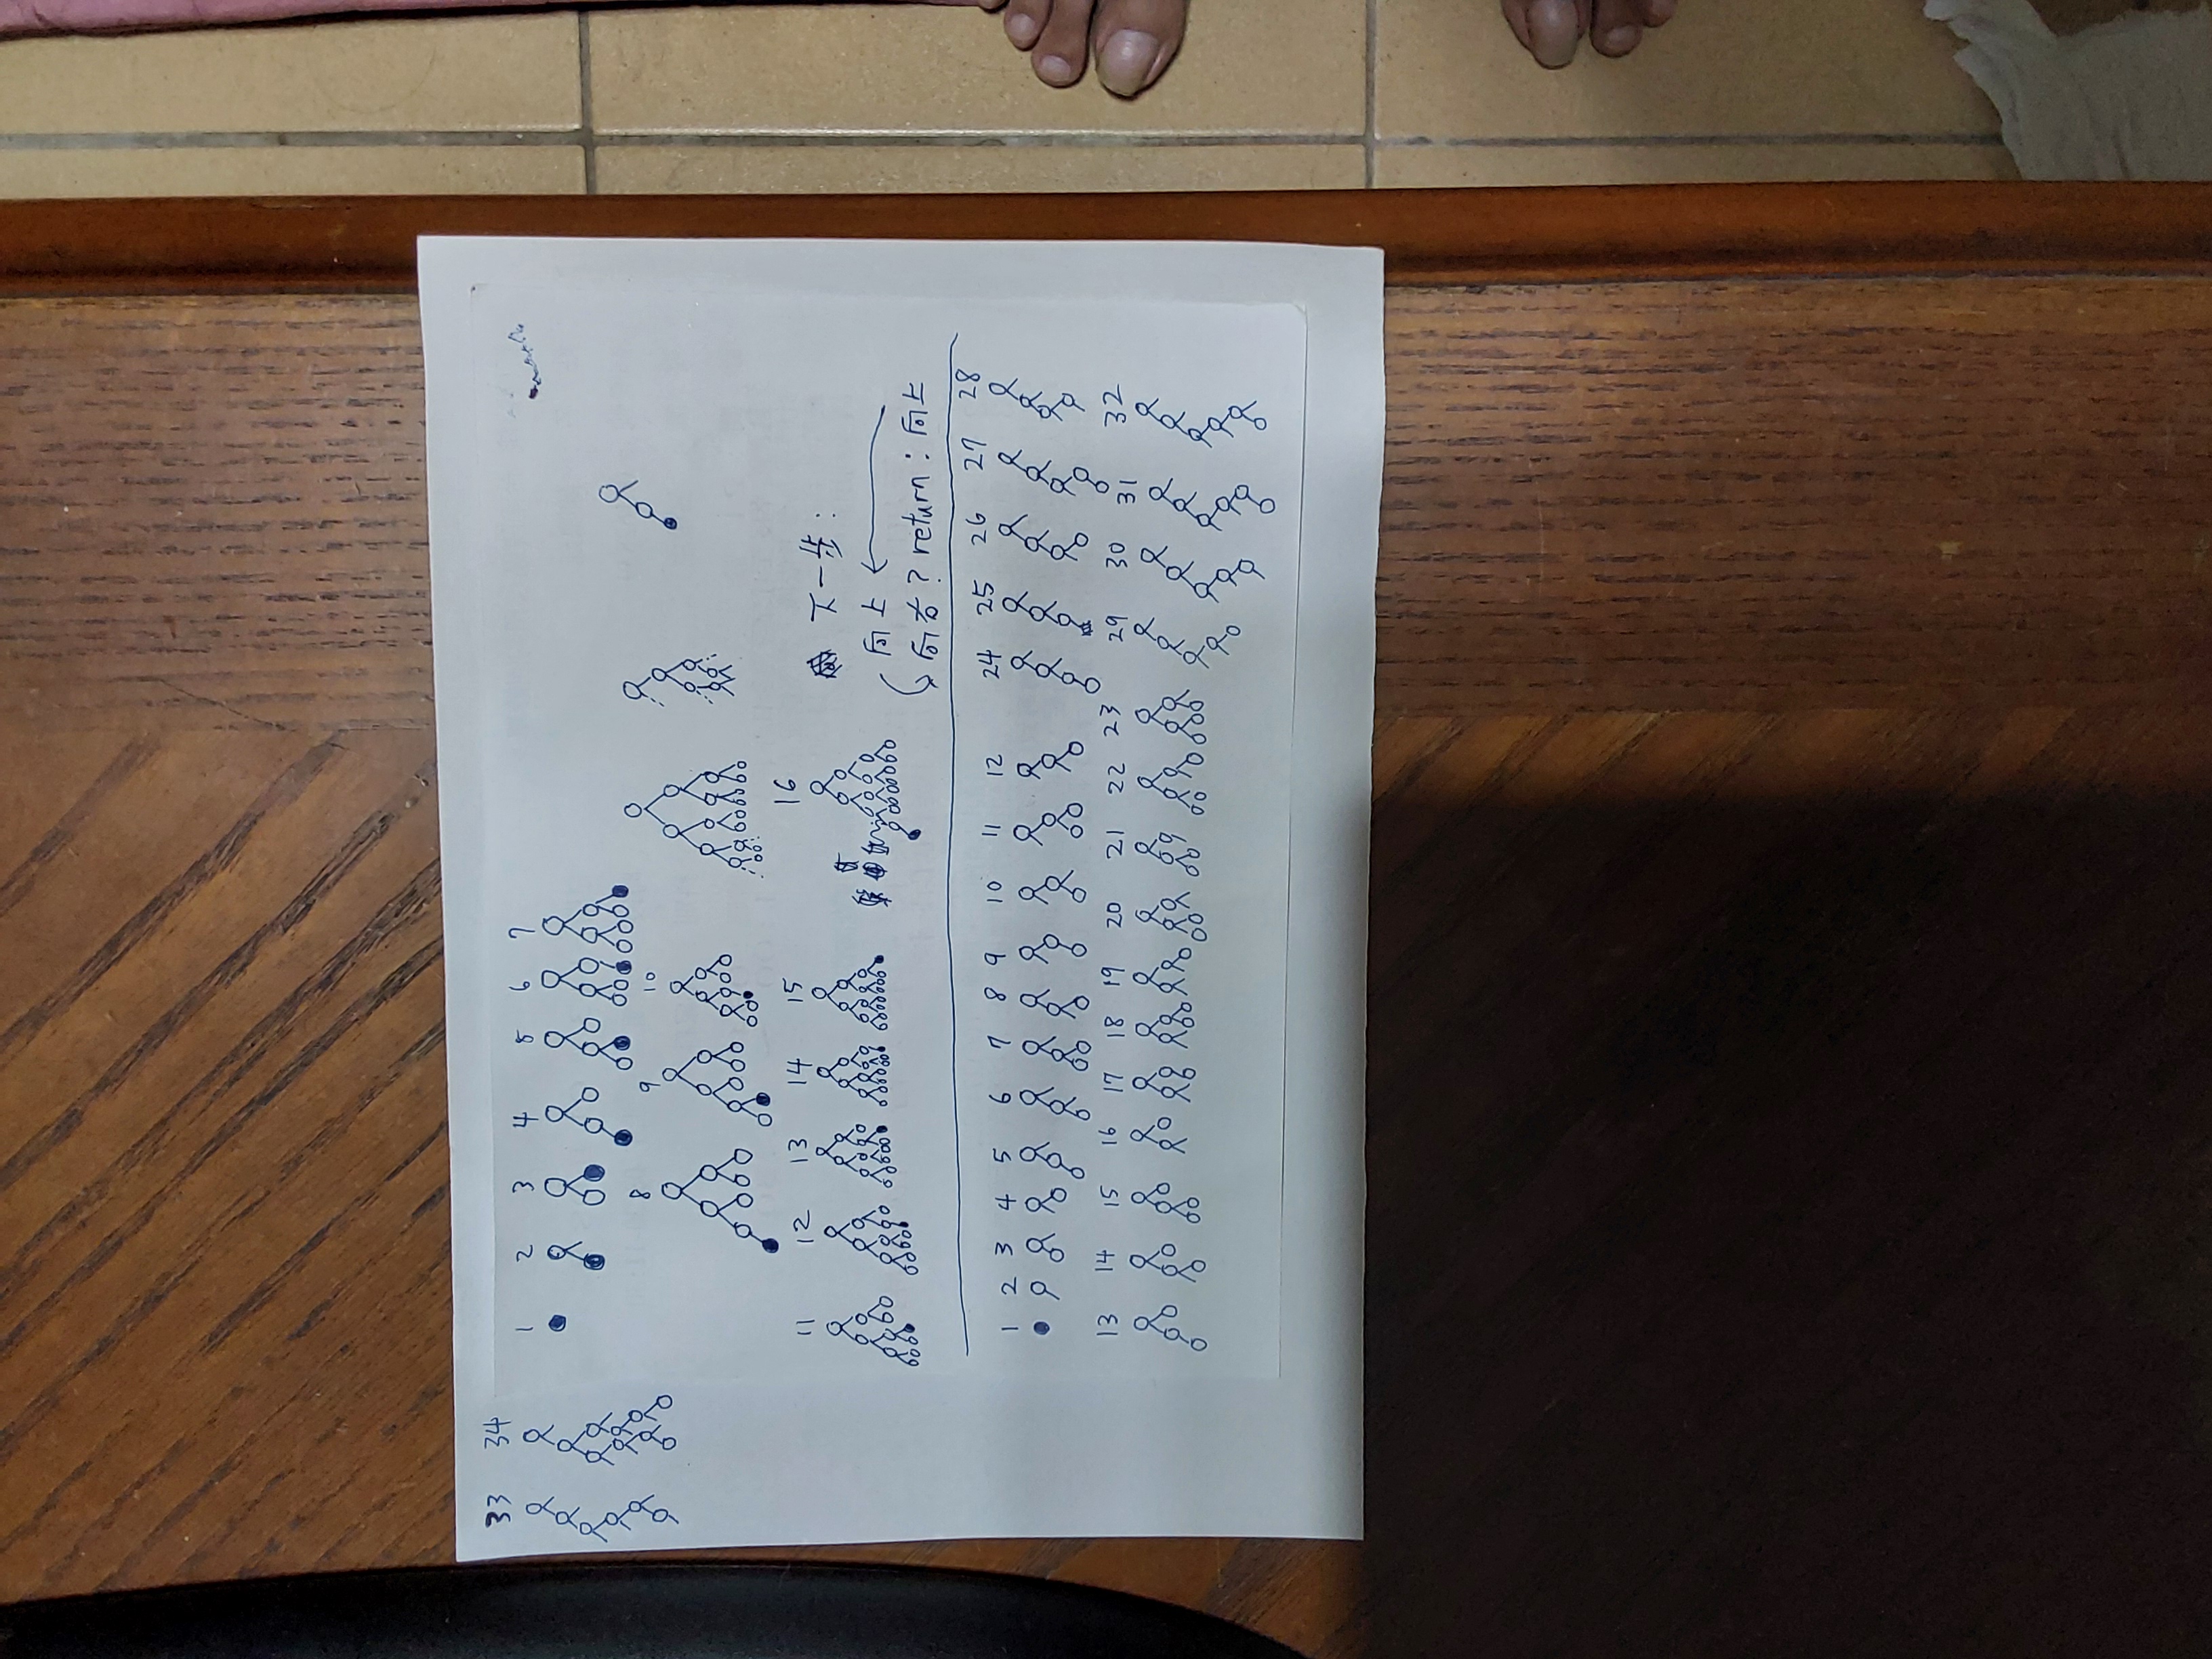 33 34
1 2 3 4 5 6 7
8 9 10
11 12 13 14 15 16
下一步:
向上
向右? return : 向上
1 2 3 4 5 6 7 8 9 10 11 12 24 25 26 27 28
13 14 15 16 17 18 19 20 21 22 23 29 30 31 32